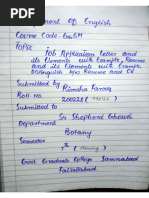 Department Of English
Course Code. Eng611
Topic:
Job Application Letter and
its Elements with Example, Resume
and its Elements with Example
Distinguish b/w Resume and CV
Submitted by
Rimsha Farooq
Roll No.
Submitted to
Sir Shepherd Ghosh
Department
Botany
Semester
(Morning)
Govt. Graduate College Samanabad
Faisalabad